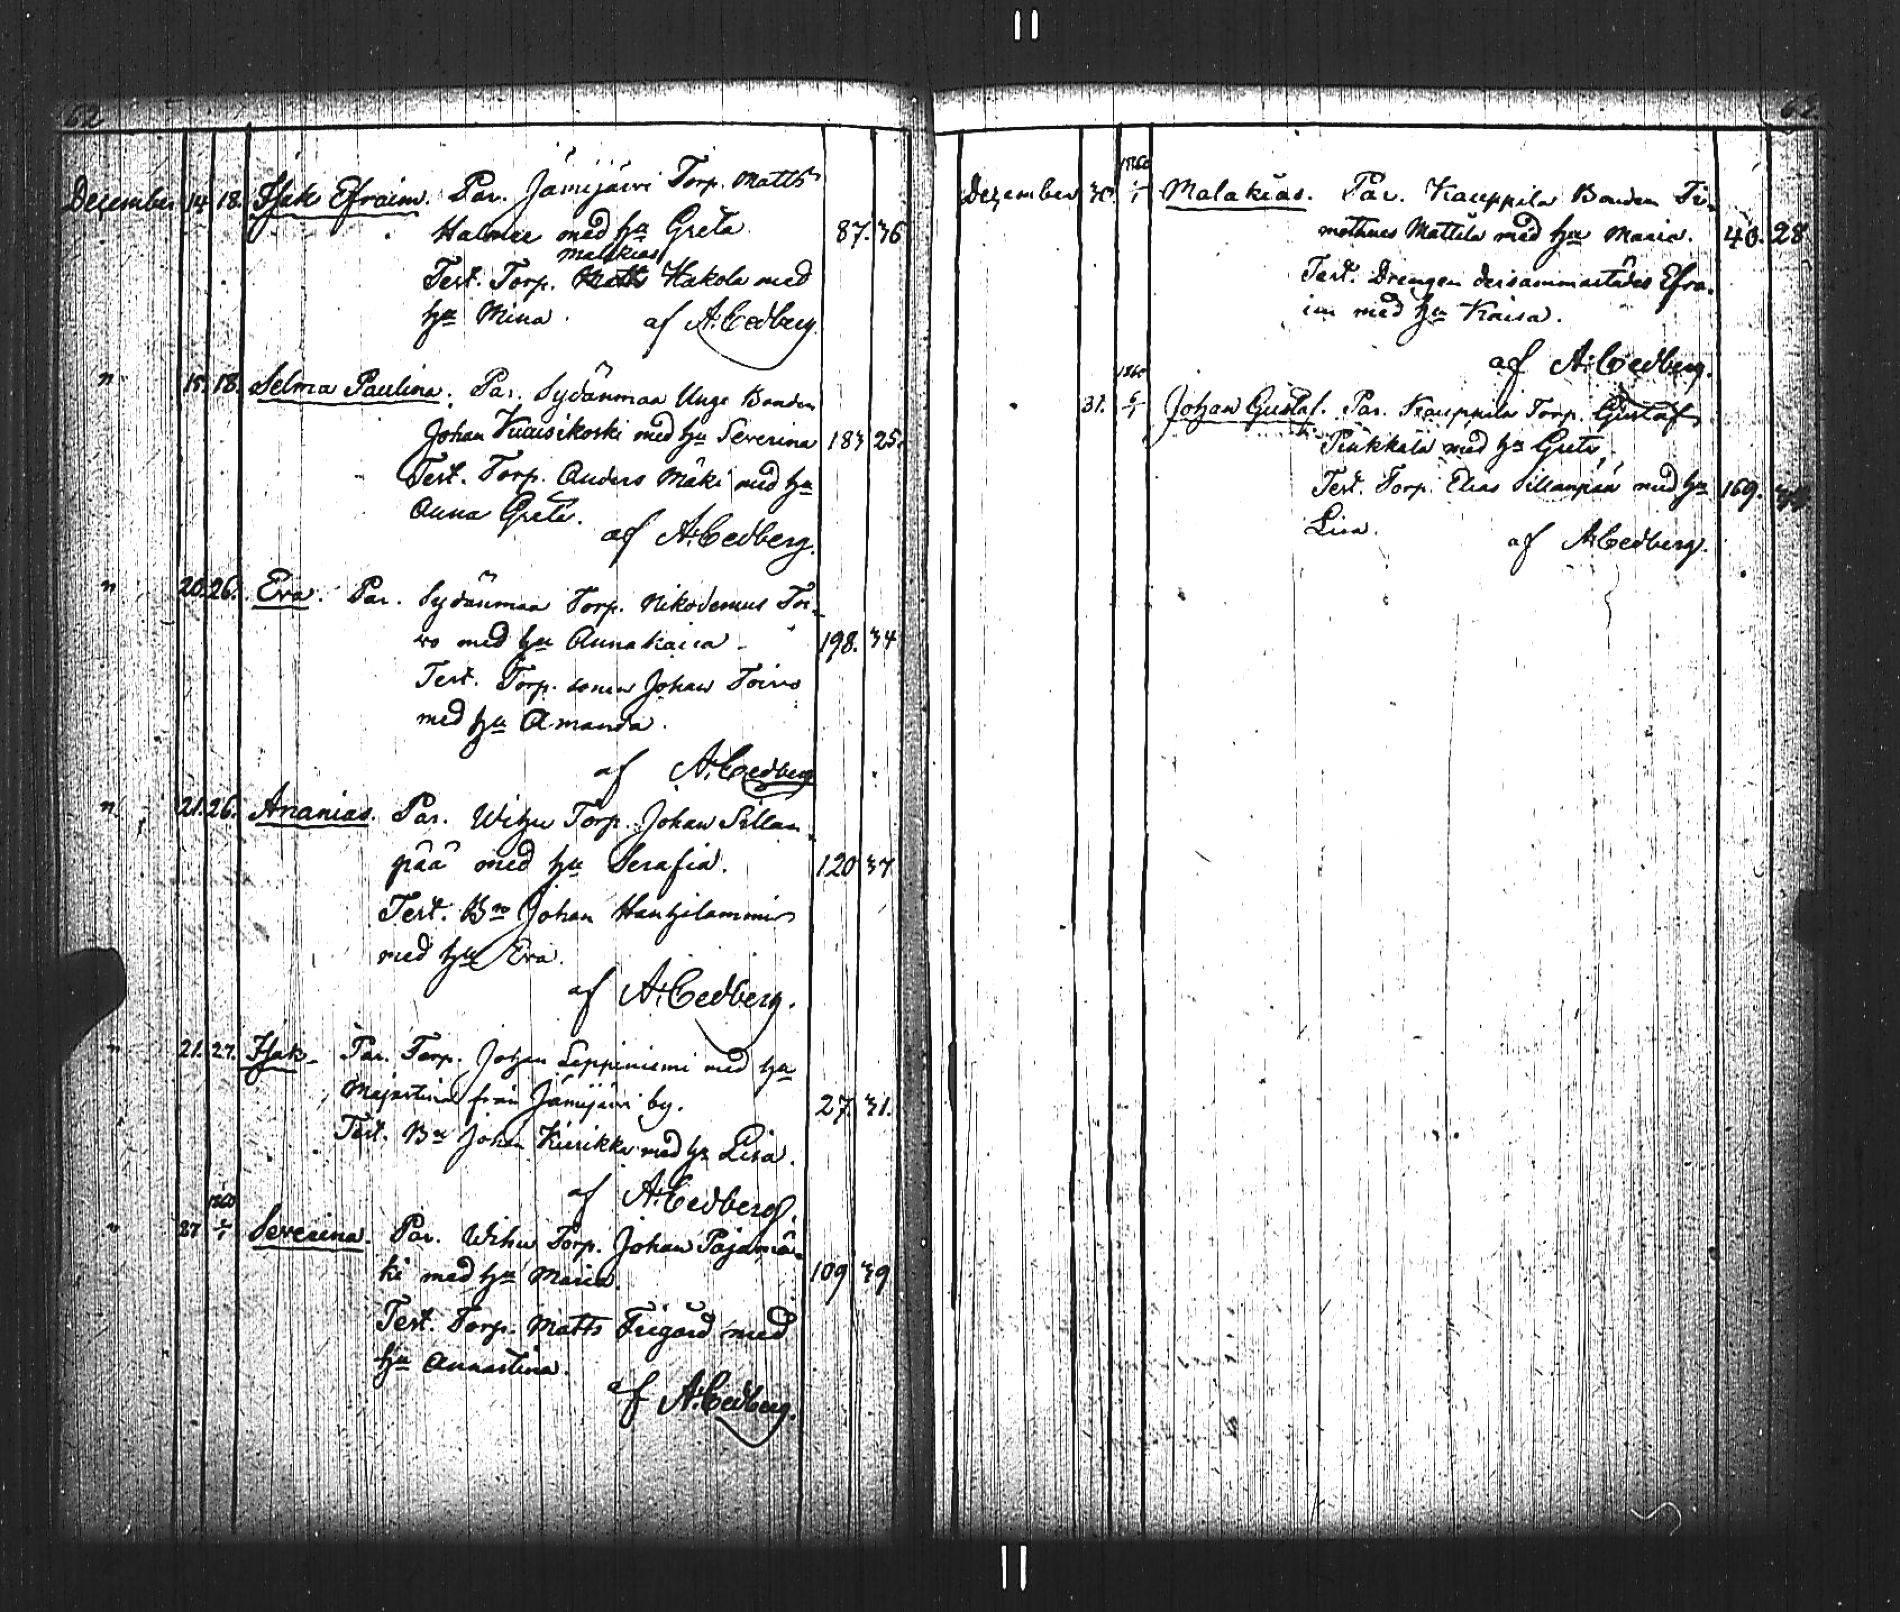 62
December 14. 18. Isak Efraim. Par. Jämijärvi Torp. Matts
Halmee med hu Greta 87. 36
Malakias
Test. Torp. Matts Hakola med
hu Mina. af A: Cedberg.
" 15. 18. Selma Paulina. Par. Sydänmaa Unge Bonden
Johan Kuusikoski med hu Severina 183 25.
Test. Torp. Anders Mäki med hu
Anna Greta.
af A: Cedberg.
" 20. 26. Eva. Par. Sydänmaa Torp. Nikodemus Toi-
vo med hu Annakaisa 198. 34
Test. Torp. sonen Johan Toivo
med hu Amanda.
af A: Cedberg
" 21. 26. Ananias. Par. Wihu Torp. Johan Sillan-
pää med hu Serafia. 120 37
Test. Bn Johan Hanhilammi
med hu Eva.
af A: Cedberg.
" 21. 27. Isak. Par. Torp. Johan Leppiniemi med hu
Majastina från Jämijärvi by. 27. 31.
Test. Bn Johan Kiirikka med hu Lisa.
af A: Cedberg.
1860
" 27 1/1 Severina. Par. Wihu Torp. Johan Pajamä-
ki med hu Maria. 109 39
Test. Torp. Matts Frigård med
hu Annastina.
af A: Cedberg.
1860
December 30. 1/1 Malakias. Par. Kauppila Bonden Ti-
motheus Mattila med hu Maria. 40. 28
Test. Drengen dersammastädes Efra-
im med hu Kaisa.
af A: Cedberg.
1860
31. 6/1 Johan Gustaf. Par. Kauppila Torp. Gustaf
med hu Greta,
Test. Torp. Elias Sillanpää med hu 169.
Lisa. af A: Cedberg.